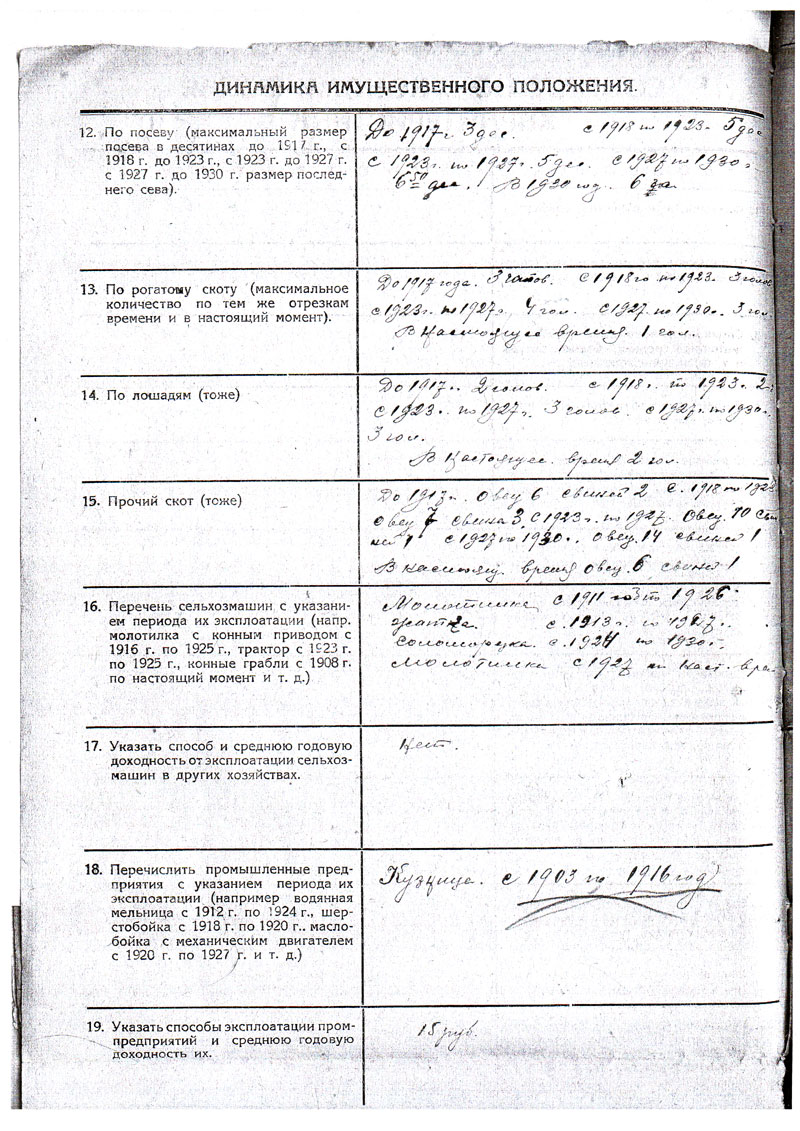 ДИНАМИКА ИМУЩЕСТВЕННОГО ПОЛОЖЕНИЯ.
12. По посеву (максимальный размер
посева в десятинах до 1917 г., с
1918 г. до 1923 г., с 1923 г. до 1927 г.
с 1927 г. до 1930 г. размер послед-
него сева).
До 1917 г. 3 дес. с 1918 по 1923 г. 5 дес
с 1923 г. по 1927 г. 5 дес. с 1927 по 1930 г.
6 50 дес. В 1930 год. 6 га.
13. По рогатому скоту (максимальное
количество по тем же отрезкам
времени и в настоящий момент).
До 1917 года. 3 голов. с 1918 го по 1923 г. 3 голов
с 1923 г. по 1927 г. 4 гол. с 1927 по 1930 г. 3 гол.
В Настоящее время. 1 гол.
14. По лошадям (тоже)
До 1917 г. 2 голов. с 1918 г. по 1923 г. 2
с 1923 г. по 1927 г. 3 голов. с 1927 г. по 1930 г.
3 гол.
В Настоящее. время 2 гол.
15. Прочий скот (тоже)
До 1917 г. овец 6 свиней 2 с. 1918 по 1923
овец 7 свиней 3. с 1923 г. по 1927. Овец. 10 сви
ней 1 с 1927 по 1930 г. овец. 14 свиней 1
В настоящ. время овец. 6 свиней 1
16. Перечень сельхозмашин с указани-
ем периода их эксплоатации (напр.
молотилка с конным приводом с
1916 г. по 1925 г., трактор с 1923 г.
по 1925 г., конные грабли с 1908 г.
по настоящий момент и т. д.)
Молотилка с 1911 по 1926
жатка. с. 1913 г. по 1927 г.
Соломорезка. с. 1924 по 1930 г.
Молотилка с 1927 по наст. врем
17. Указать способ и среднюю годовую
доходность от эксплоатации сельхоз-
машин в других хозяйствах.
Нет.
18. Перечислить промышленные пред-
приятия с указанием периода их
эксплоатации (например водянная
мельница с 1912 г. по 1924 г., шер-
стобойка с 1918 г. по 1920 г.. масло-
бойка с механическим двигателем
с 1920 г. по 1927 г. и т. д.)
Кузница. с 1903 по 1916 год
19. Указать способы эксплоатации пром-
предприятий и среднюю годовую
доходность их.
15 руб.